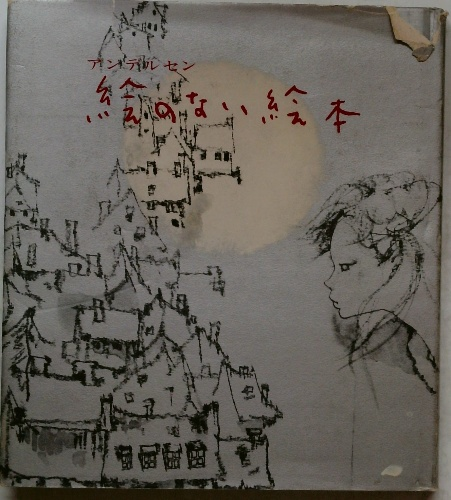 アンデルセン
絵のない絵本